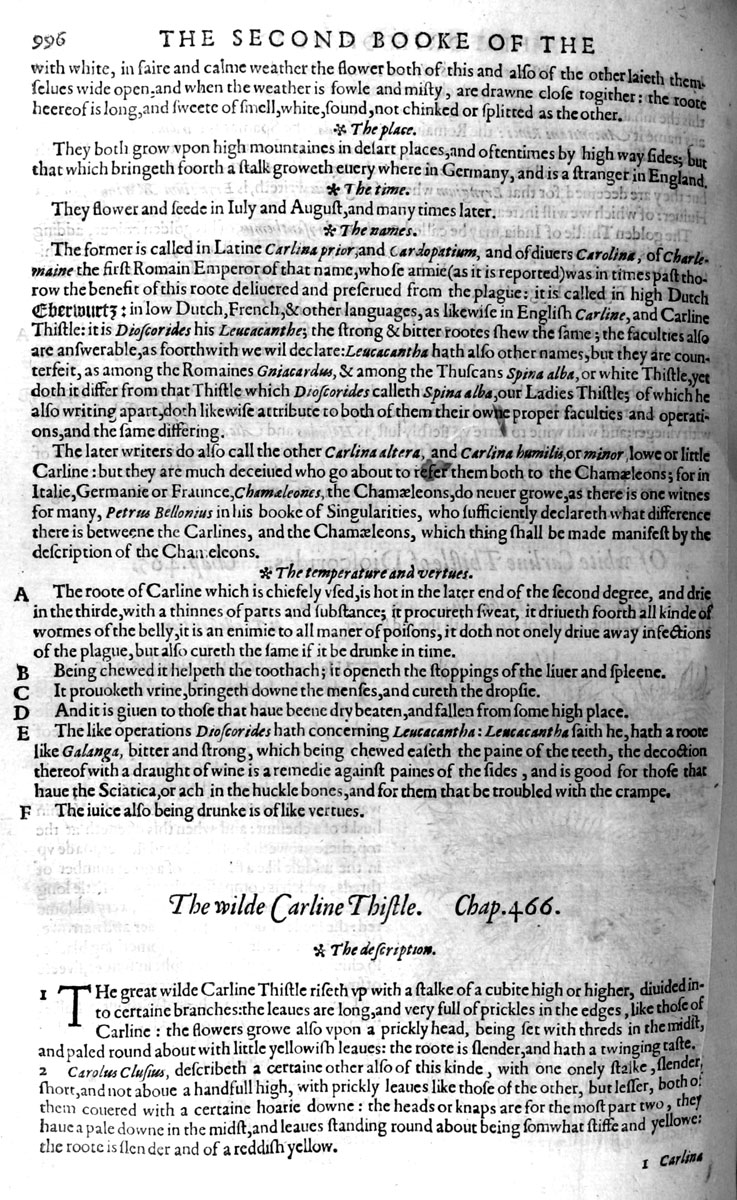 996 THE SECOND BOOKE OF THE
with white, in faire and calme weather the flower both of this and alſo of the other laieth them-
ſelues wide open, and when the weather is fowle and miſty, are drawne cloſe togither: the roote
heereof is long, and ſweete of ſmell, white, ſound, not chinked or ſplitted as the other.
✻ The place.
They both grow vpon high mountaines in deſart places, and oftentimes by high way ſides; but
that which bringeth foorth a ſtalk groweth euery where in Germany, and is a ſtranger in England.
✻ The time.
They flower and ſeede in Iuly and Auguſt, and many times later.
✻ The names.
The former is called in Latine Carlina prior, and Cardopatium, and of diuers Carolina, of Charle-
maine the firſt Romain Emperor of that name, whoſe armie (as it is reported) was in times paſt tho-
row the benefit of this roote deliuered and preſerued from the plague: it is called in high Dutch
Eberwurtz: in low Dutch, French, & other languages, as likewiſe in Engliſh Carline, and Carline
Thiſtle: it is Dioſcorides his Leucacanthe; the ſtrong & bitter rootes ſhew the ſame; the faculties alſo
are anſwerable, as foorthwith we wil declare: Leucacantha hath alſo other names, but they are coun-
terfeit, as among the Romaines Gniacardus, & among the Thuſcans Spina alba, or white Thiſtle, yet
doth it differ from that Thiſtle which Dioſcorides calleth Spina alba, our Ladies Thiſtle; of which he
alſo writing apart, doth likewiſe attribute to both of them their owne proper faculties and operati-
ons, and the ſame differing.
The later writers do alſo call the other Carlina altera, and Carlina humilis, or minor, lowe or little
Carline: but they are much deceiued who go about to refer them both to the Chamæleons; for in
Italie, Germanie or Fraunce, Chamæleones, the Chamæleons, do neuer growe, as there is one witnes
for many, Petrus Bellonius in his booke of Singularities, who ſufficiently declareth what difference
there is betweene the Carlines, and the Chamæleons, which thing ſhall be made manifeſt by the
deſcription of the Chamæleons.
✻ The temperature and vertues.
A The roote of Carline which is chiefely vſed, is hot in the later end of the ſecond degree, and drie
in the thirde, with a thinnes of parts and ſubſtance; it procureth ſweat, it driueth foorth all kinde of
wormes of the belly, it is an enimie to all maner of poiſons, it doth not onely driue away infections
of the plague, but alſo cureth the ſame if it be drunke in time.
B Being chewed it helpeth the toothach; it openeth the ſtoppings of the liuer and ſpleene.
C It prouoketh vrine, bringeth downe the menſes, and cureth the dropſie.
D And it is giuen to thoſe that haue beene dry beaten, and fallen from ſome high place.
E The like operations Dioſcorides hath concerning Leucacantha: Leucacantha ſaith he, hath a roote
like Galanga, bitter and ſtrong, which being chewed eaſeth the paine of the teeth, the decoction
thereof with a draught of wine is a remedie againſt paines of the ſides, and is good for thoſe that
haue the Sciatica, or ach in the huckle bones, and for them that be troubled with the crampe.
F The iuice alſo being drunke is of like vertues.
The wilde Carline Thiſtle. Chap. 466.
✻ The deſcription.
1 THe great wilde Carline Thiſtle riſeth vp with a ſtalke of a cubite high or higher, diuided in-
to certaine branches: the leaues are long, and very full of prickles in the edges, like thoſe of
Carline: the flowers growe alſo vpon a prickly head, being ſet with threds in the midſt,
and paled round about with little yellowiſh leaues: the roote is ſlender, and hath a twinging taſte.
2 Carolus Cluſius, deſcribeth a certaine other alſo of this kinde, with one onely ſtalke, ſlender,
ſhort, and not aboue a handfull high, with prickly leaues like thoſe of the other, but leſſer, both of
them couered with a certaine hoarie downe: the heads or knaps are for the moſt part two, they
haue a pale downe in the midſt, and leaues ſtanding round about being ſomwhat ſtiffe and yellowe:
the roote is ſlender and of a reddiſh yellow.
1 Carlina